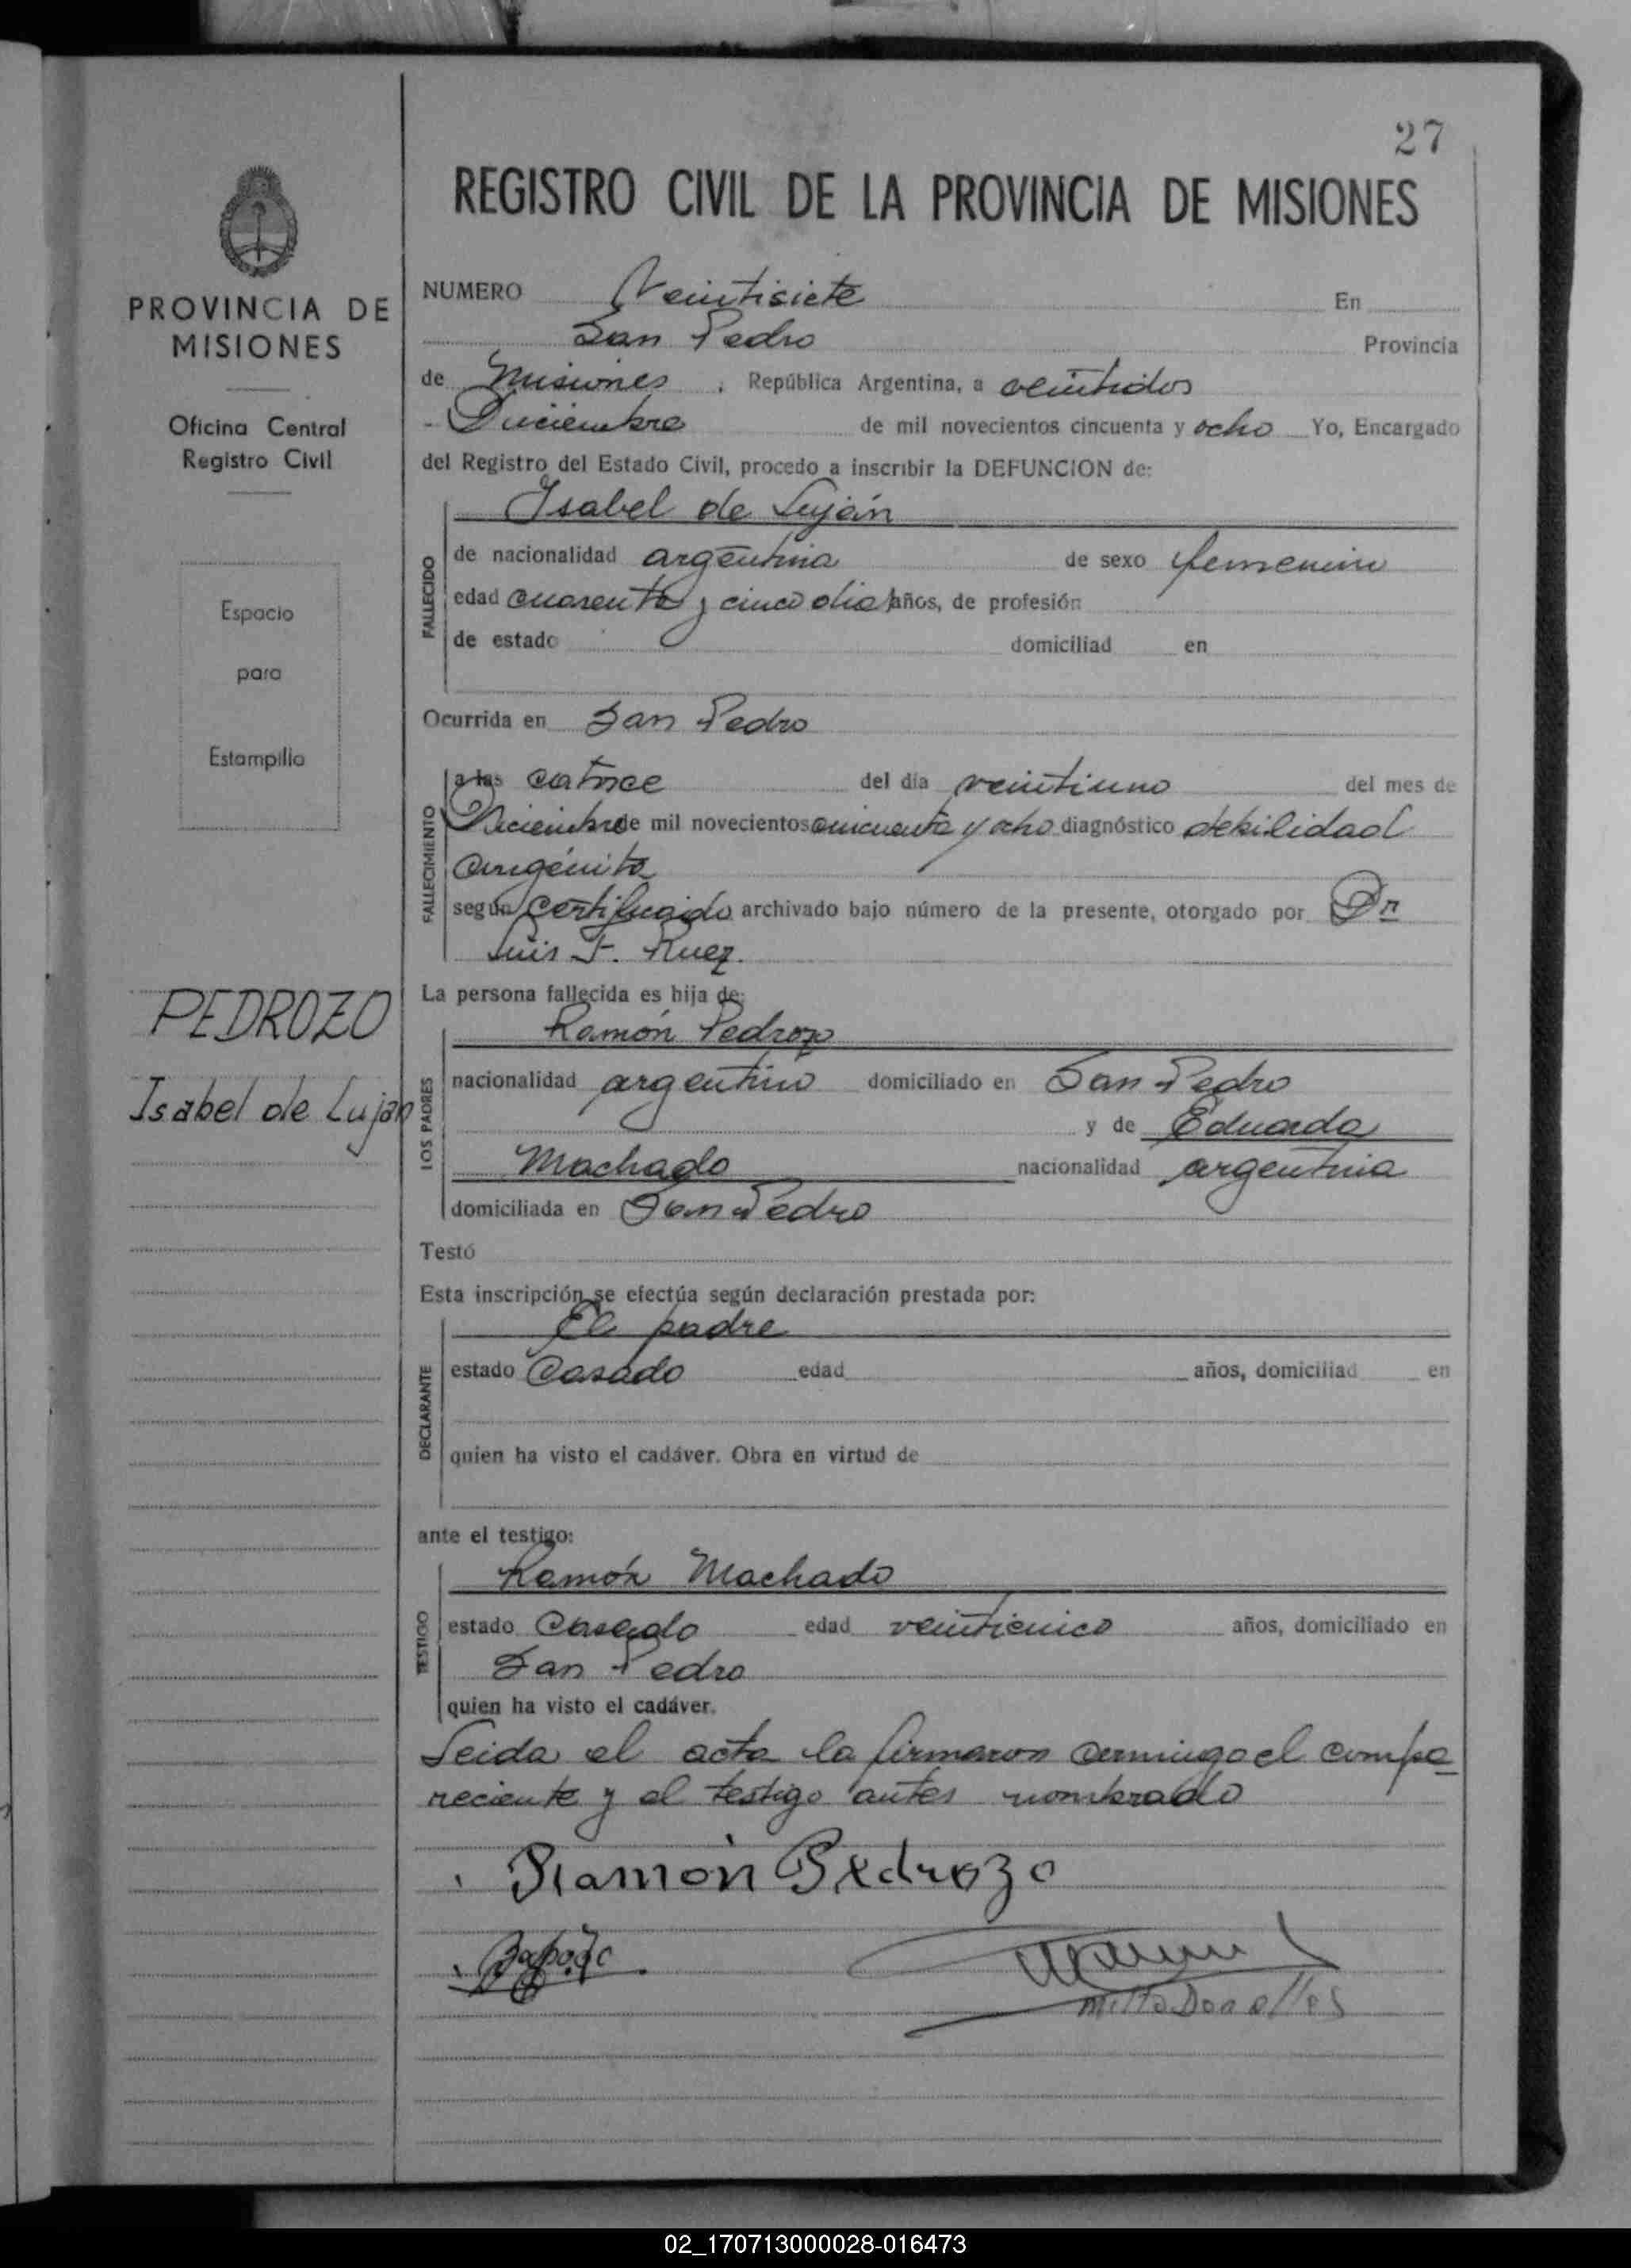 27
REGISTRO CIVIL DE LA PROVINCIA DE MISIONES
PROVINCIA DE
MISIONES
Oficina Central
Registro Civil
Espacio
para
Estampilla
PEDROZO
Isabel de Lujan
NUMERO Veintisiete En
San Pedro Provincia
de Misiones, República Argentina, a veintidos
Diciembre de mil novecientos cincuenta y ocho Yo, Encargado
del Registro del Estado Civil, procedo a inscribir la DEFUNCION de:
Isabel de Luján
FALLECIDO
de nacionalidad argentina de sexo femenino
edad cuarenta y cinco dias años, de profesión
de estado domiciliad en
Ocurrida en San Pedro
FALLECIMIENTO
a las catorce del día veintiuno del mes de
Diciembre de mil novecientos cincuenta y ocho diagnóstico debilidad
congénita
según certificado archivado bajo número de la presente, otorgado por Dr
Luis F. Ruez.
La persona fallecida es hija de:
LOS PADRES
Ramón Pedrozo
nacionalidad argentino domiciliado en San Pedro
y de Eduarda
Machado nacionalidad argentina
domiciliada en San Pedro
Testó
Esta inscripción se efectúa según declaración prestada por:
DECLARANTE
El padre
estado Casado edad años, domiciliad en
quien ha visto el cadáver. Obra en virtud de
ante el testigo:
TESTIGO
Ramón Machado
estado Casado edad veinticinco años, domiciliado en
San Pedro
quien ha visto el cadáver.
Leida el acta la firmaron conmigo el compa
reciente y el testigo antes nombrado
Ramón Pedrozo
02_170713000028-016473